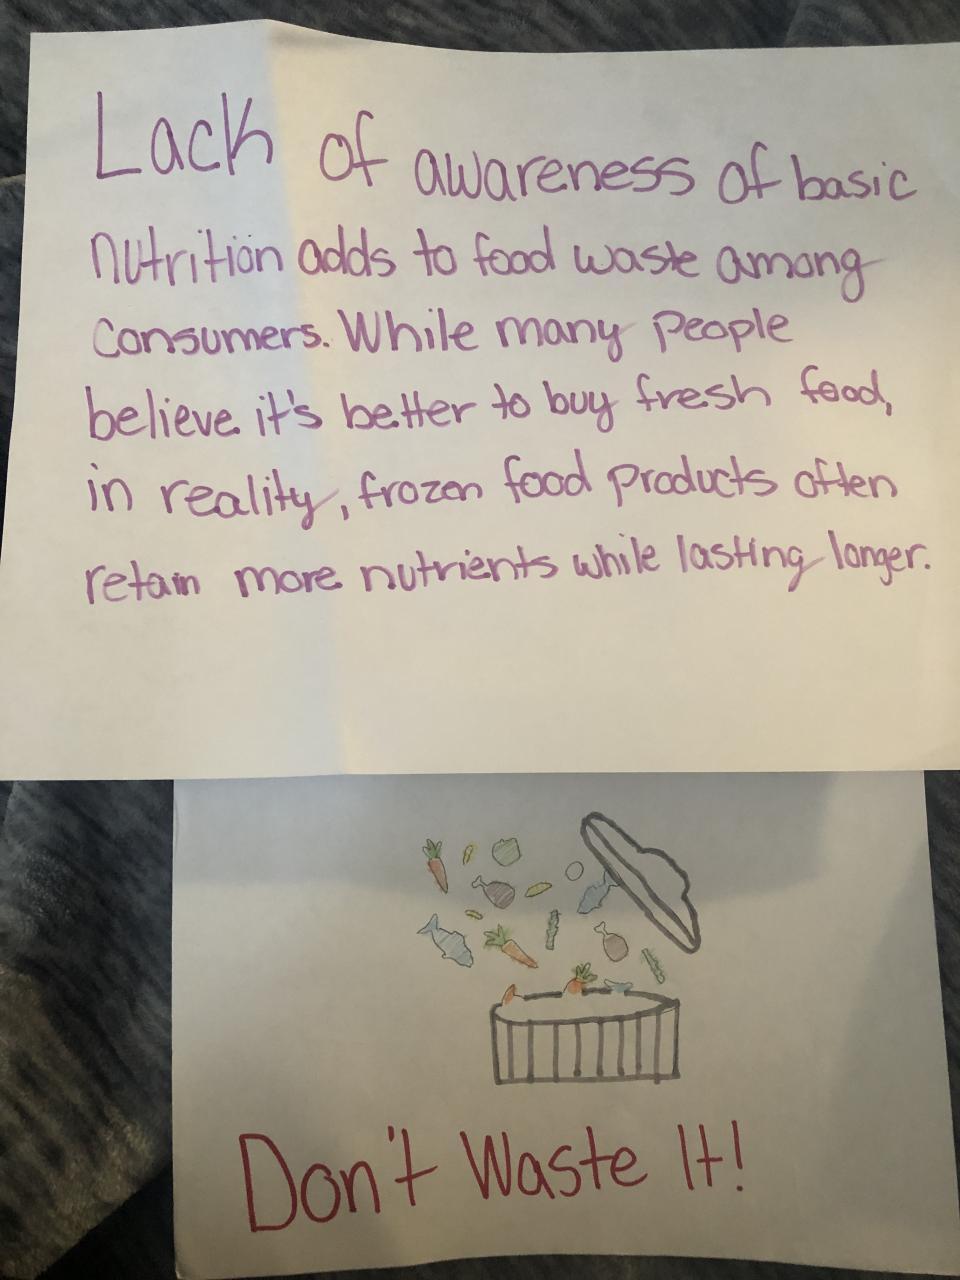 Lack of awareness of basic
nutrition adds to food waste among
consumers. While many people
believe it's better to buy fresh food,
in reality, frozen food products often
retain more nutrients while lasting longer.
Don't Waste It!